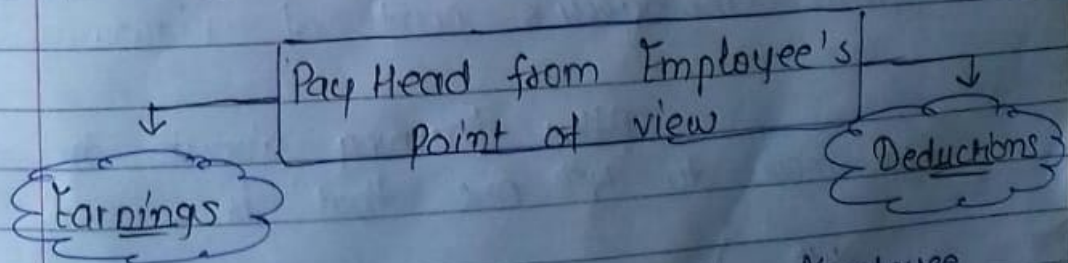 Pay Head from Employee's
Point of view
Earnings
Deductions